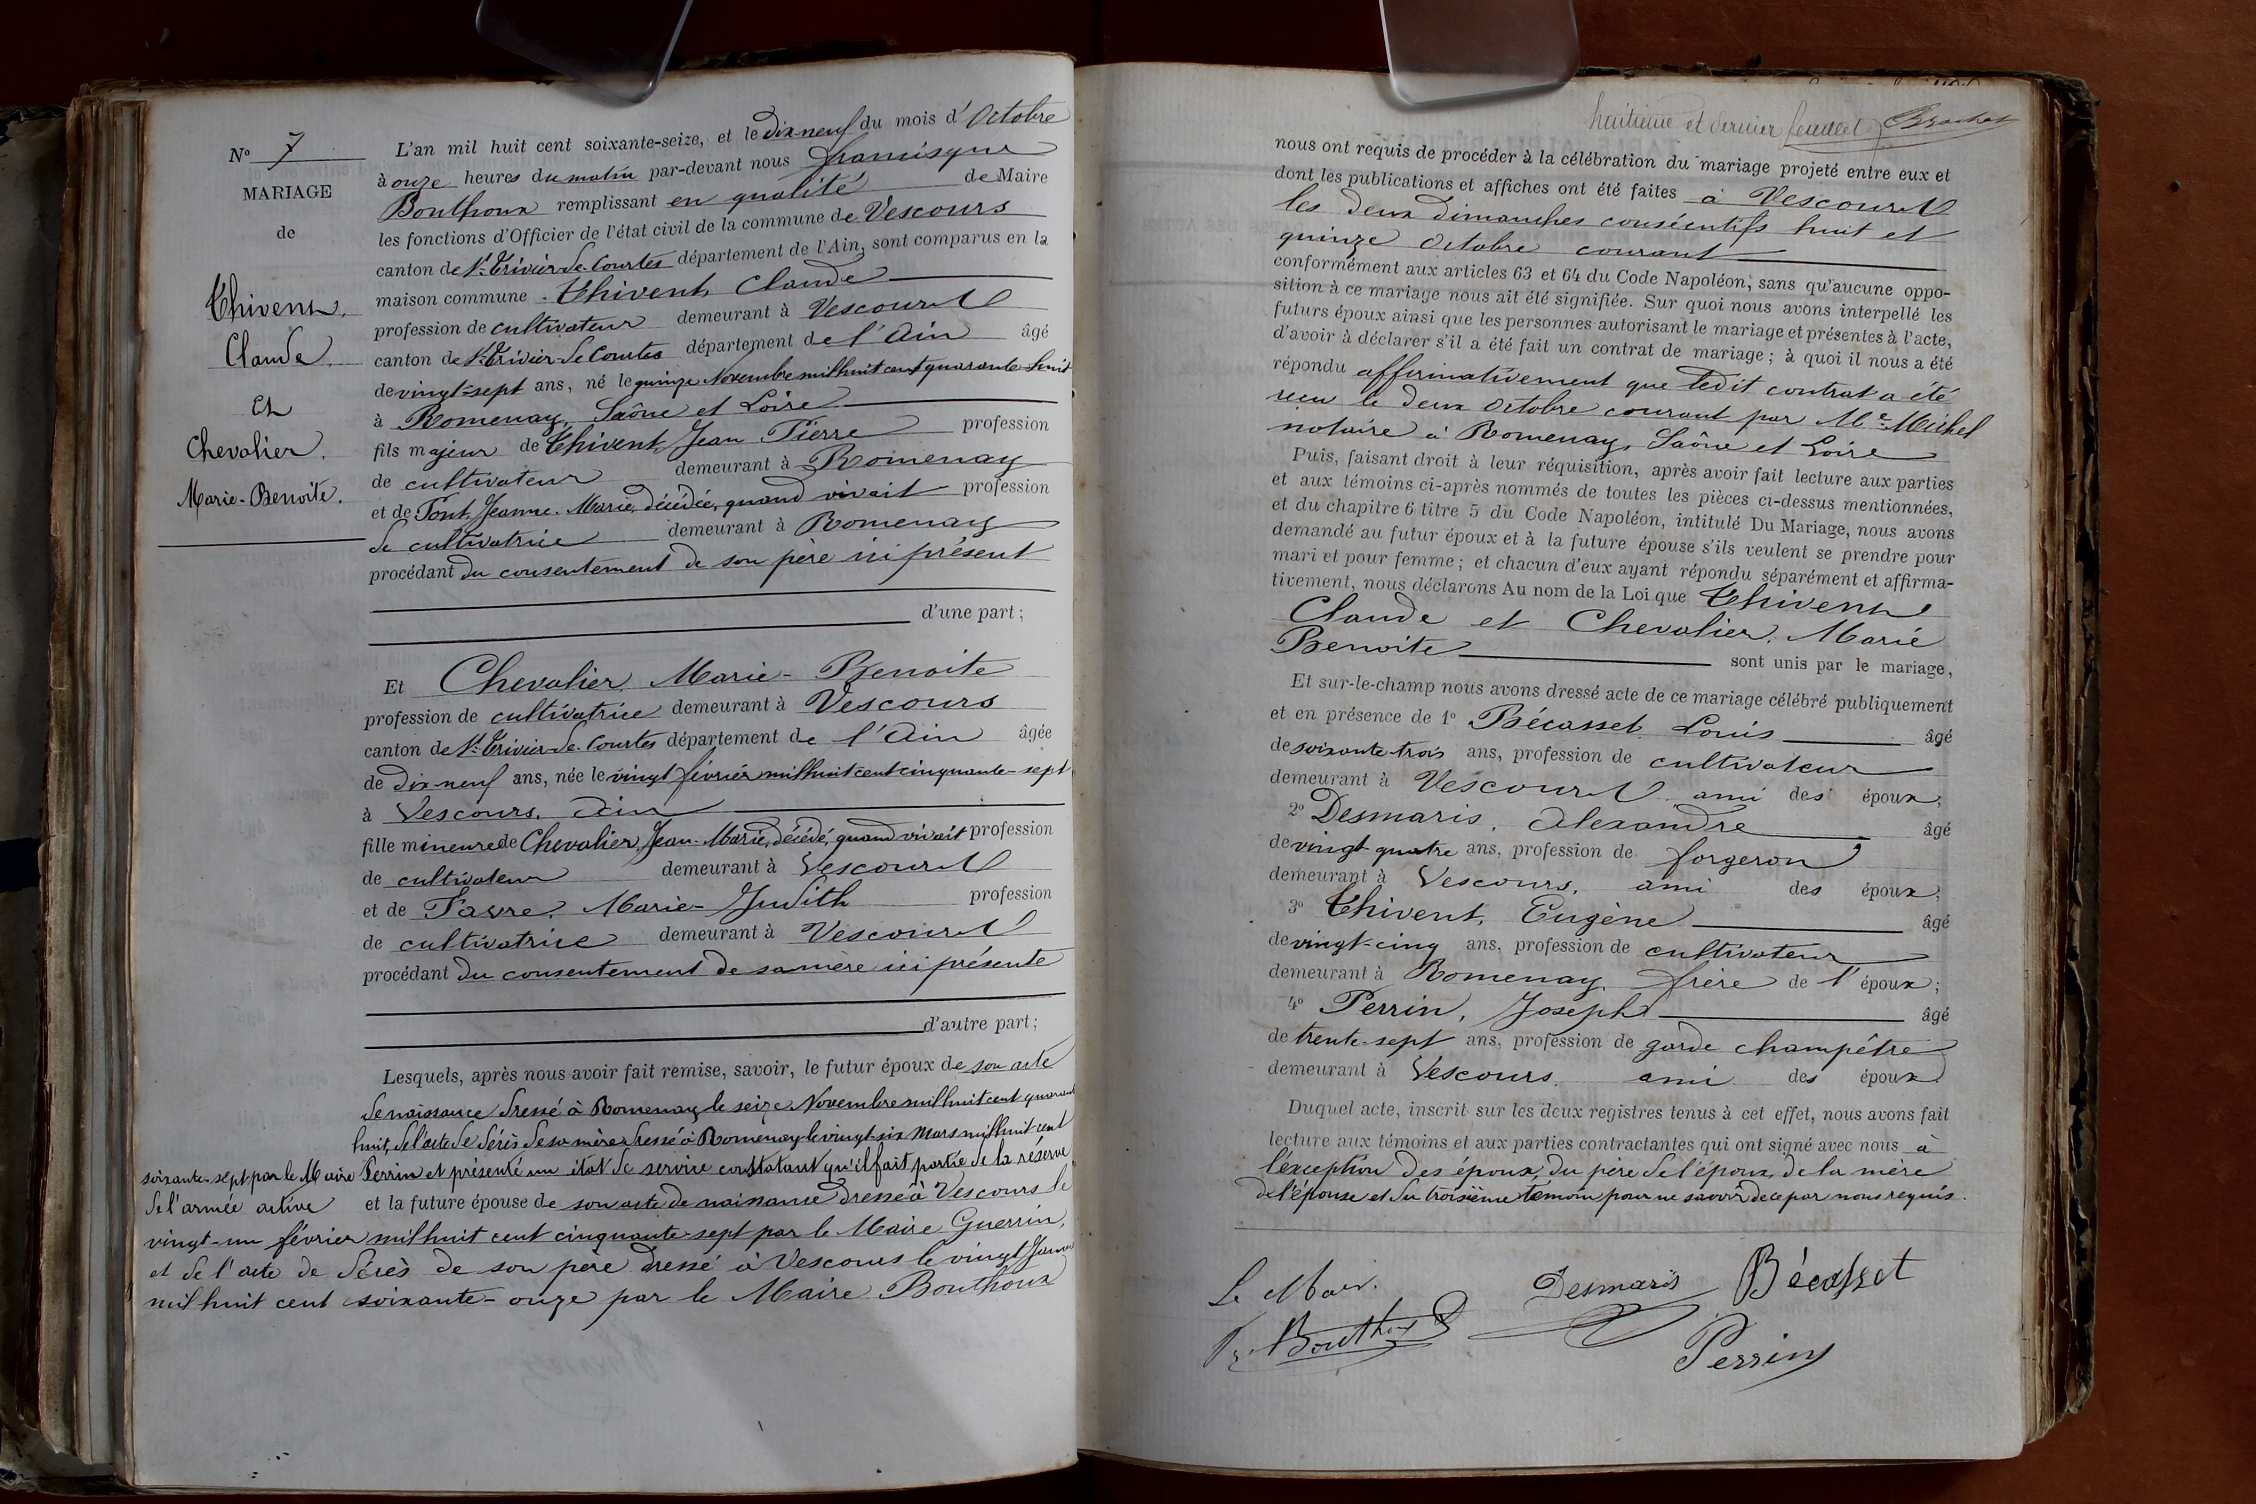 N° 7
MARIAGE
de
Thivent,
Claude
Et
Chevalier,
Marie-Benoite.
L'an mil huit cent soixante-seize, et le dix neuf du mois d'Octobre
à onze heures du matin par-devant nous francisque
Bouthoux remplissant en qualité de Maire
les fonctions d'Officier de l'état civil de la commune de Vescours
canton de St. Trivier-de-Courtes département de l'Ain, sont comparus en la
maison commune. Thivent, Claude
profession de cultivateur demeurant à Vescours
canton de St. Trivier-de Courtes département de l'Ain âgé
de vingt-sept ans, né le quinze Novembre mil huit cent quarante-huit
à Romenay, Saône et Loire
fils majeur de Thivent, Jean Pierre profession
de cultivateur demeurant à Romenay
et de Pont, Jeanne-Marie, décédée, quand vivait profession
de cultivatrice demeurant à Romenay
procédant du consentement de son père ici présent
d'une part;
Et Chevalier, Marie-Benoite
profession de cultivatrice demeurant à Vescours
canton de St. Trivier-de-Courtes département de l'Ain âgée
de dix-neuf ans, née le vingt février mil huit cent cinquante-sept
à Vescours, Ain
fille mineure de Chevalier, Jean-Marie, décédé, quand vivait profession
de cultivateur demeurant à Vescours
et de Favre, Marie-Judith profession
de cultivatrice demeurant à Vescours
procédant du consentement de sa mère ici présente
d'autre part;
Lesquels, après nous avoir fait remise, savoir, le futur époux de son acte
de naissance dressé à Romenay le seize Novembre mil huit cent quarante
huit, de l'acte de décès de sa mère dressé à Romenay le vingt-six Mars mil huit cent
soixante-sept par le Maire Perrin et présenté un état de service constatant qu'il fait partie de la réserve
de l'armée active et la future épouse de son acte de naissance dressé à Vescours le
vingt-un février mil huit cent cinquante-sept par le Maire Guerrin,
et de l'acte de décès de son père dressé à Vescours le vingt Janvier
mil huit cent soixante-onze par le Maire Bouthoux
huitième et dernier feuillet
nous ont requis de procéder à la célébration du mariage projeté entre eux et
dont les publications et affiches ont été faites à Vescours
les deux dimanches consécutifs huit et
quinze Octobre courant
conformément aux articles 63 et 64 du Code Napoléon, sans qu'aucune oppo-
sition à ce mariage nous ait été signifiée. Sur quoi nous avons interpellé les
futurs époux ainsi que les personnes autorisant le mariage et présentes à l'acte,
d'avoir à déclarer s'il a été fait un contrat de mariage; à quoi il nous a été
répondu affirmativement que ledit contrat a été
reçu le deux Octobre courant par Me. Michel
notaire à Romenay, Saône et Loire
Puis, faisant droit à leur réquisition, après avoir fait lecture aux parties
et aux témoins ci-après nommés de toutes les pièces ci-dessus mentionnées,
et du chapitre 6 titre 5 du Code Napoléon, intitulé Du Mariage, nous avons
demandé au futur époux et à la future épouse s'ils veulent se prendre pour
mari et pour femme; et chacun d'eux ayant répondu séparément et affirma-
tivement, nous déclarons Au nom de la Loi que Thivent
Claude et Chevalier, Marie
Benoite sont unis par le mariage,
Et sur-le-champ nous avons dressé acte de ce mariage célébré publiquement
et en présence de 1° Bécasset Louis âgé
de soixante-trois ans, profession de cultivateur
demeurant à Vescours ami des époux;
2° Desmaris, Alexandre âgé
de vingt-quatre ans, profession de forgeron
demeurant à Vescours, ami des époux;
3° Thivent, Eugène âgé
de vingt-cinq ans, profession de cultivateur
demeurant à Romenay, frère de l'époux;
4° Perrin, Joseph âgé
de trente-sept ans, profession de garde champêtre
demeurant à Vescours ami des époux.
Duquel acte, inscrit sur les deux registres tenus à cet effet, nous avons fait
lecture aux témoins et aux parties contractantes qui ont signé avec nous à
l'exception des époux, du père de l'époux, de la mère
de l'épouse et du troisième témoin pour ne savoir de ce par nous requis.
Le Maire.
Desmaris Bécasset
Fr. Bouthoux
Perrin